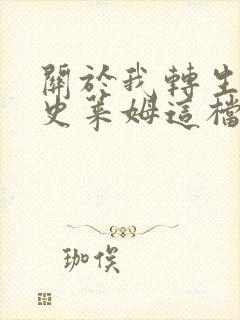 關於我轉生
史萊姆這檔
珈俟